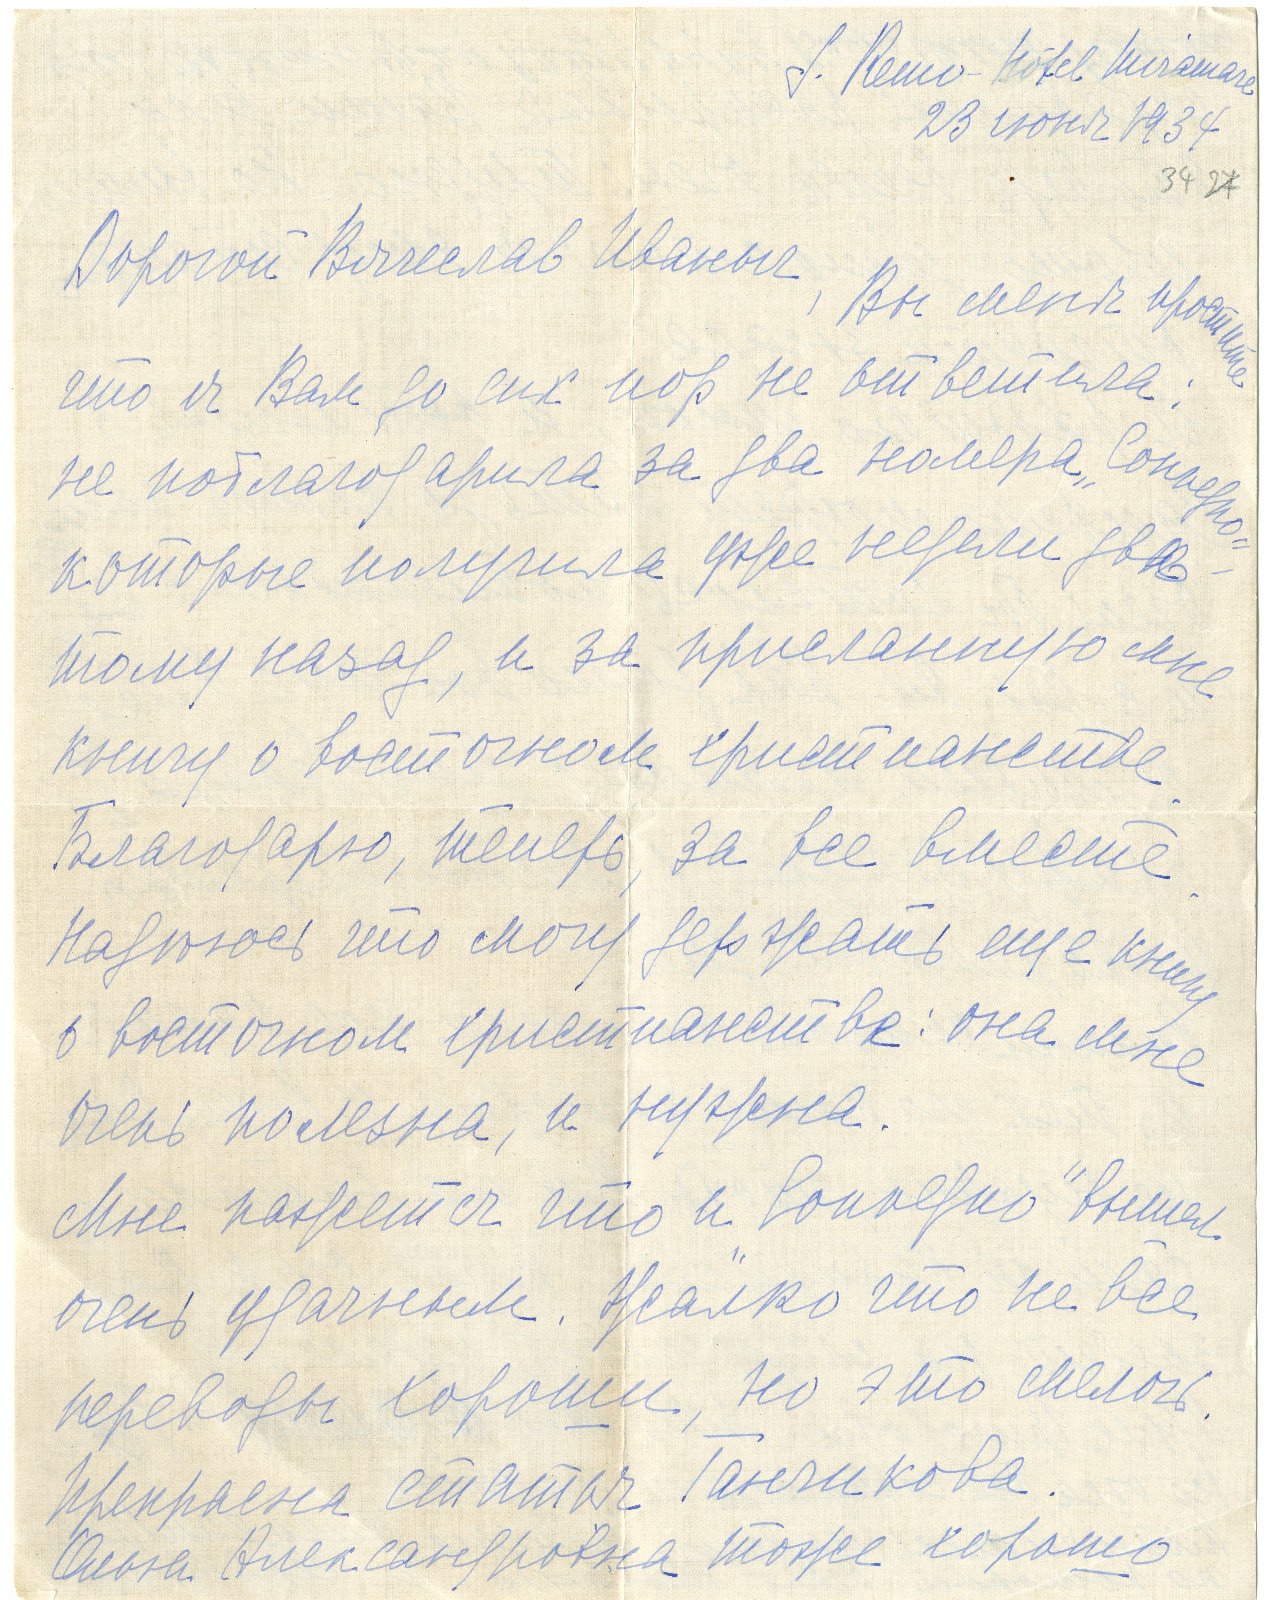 S. Remo - Hôtel Miramare
23 июня 1934
34 27
Дорогой Вячеслав Иваныч, Вы меня простите
что я Вам до сих пор не ответила:
не поблагодарила за два номера „Convegno"
которые получила уже недели две
тому назад, и за присланную мне
книгу о восточном христианстве.
Благодарю, теперь, за все вместе.
Надеюсь что могу держать еще книгу
о восточном христианстве: она мне
очень полезна, и нужна.
Мне кажется что и „Convegno" вышел
очень удачным. Жалко что не все
переводы хороши, но это мелочь.
Прекрасна статья Ганчикова.
Ольга Александровна тоже хорошо